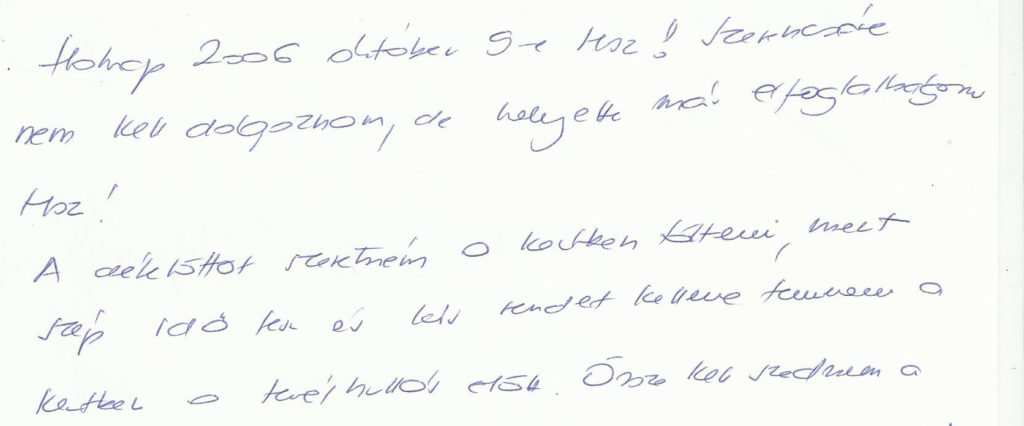 Holnap 2006 október 9-e lesz! Szerencsére
nem kell dolgoznom, de helyette más elfoglaltságom
lesz!
A délelőttöt szeretném a kertben tölteni, mert
szép idő lesz és kis rendet kellene tennem a
kertben a levélhullás előtt. Össze kell szednem a